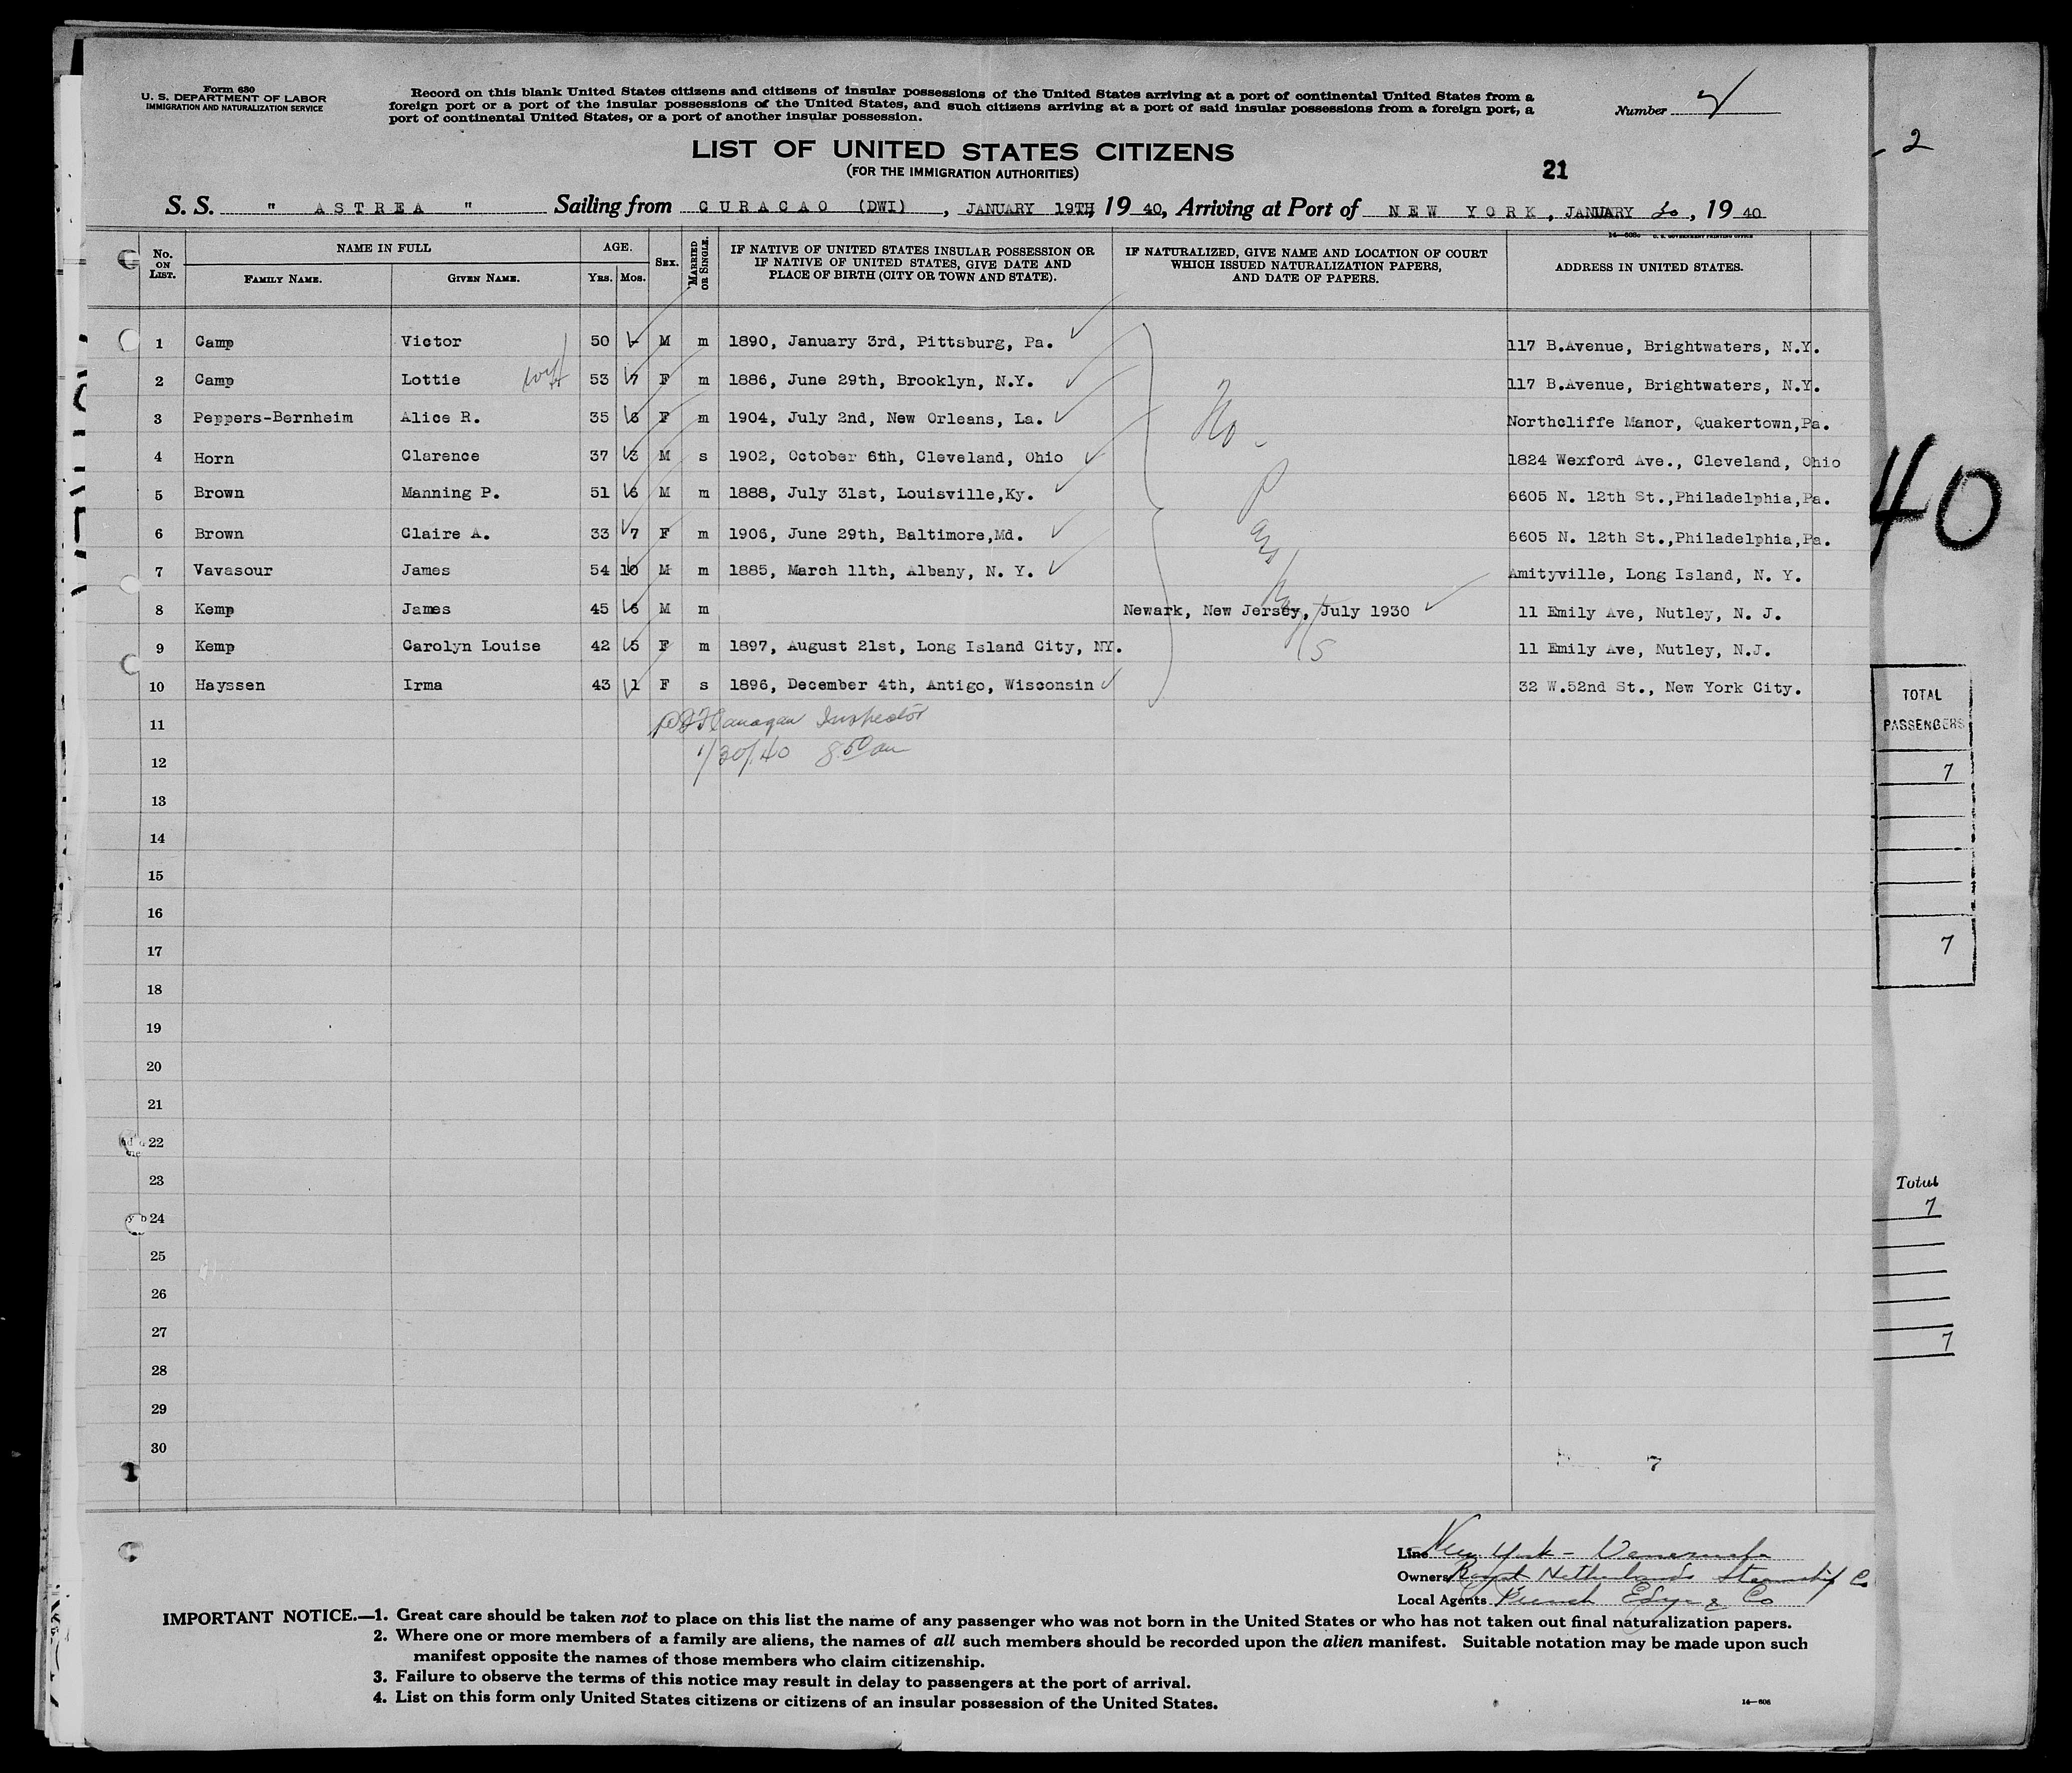 Form 630
U. S. DEPARTMENT OF LABOR
IMMIGRATION AND NATURALIZATION SERVICE
Record on this blank United States citizens and citizens of insular possessions of the United States arriving at a port of continental United States from a
foreign port or a port of the insular possessions of the United States, and such citizens arriving at a port of said insular possessions from a foreign port, a
port of continental United States, or a port of another insular possession.
Number
2
LIST OF UNITED STATES CITIZENS
(FOR THE IMMIGRATION AUTHORITIES)
21
S. S. " ASTREA " Sailing from CURACAO (DWI), JANUARY 19TH, 19 40, Arriving at Port of NEW YORK, JANUARY 30, 19 40
No. ON LIST. NAME IN FULL FAMILY NAME. GIVEN NAME. AGE. YRS. MOS. SEX. MARRIED OR SINGLE. IF NATIVE OF UNITED STATES INSULAR POSSESSION OR IF NATIVE OF UNITED STATES, GIVE DATE AND PLACE OF BIRTH (CITY OR TOWN AND STATE). IF NATURALIZED, GIVE NAME AND LOCATION OF COURT WHICH ISSUED NATURALIZATION PAPERS, AND DATE OF PAPERS. ADDRESS IN UNITED STATES.
1 Camp Victor 50 - M m 1890, January 3rd, Pittsburg, Pa. 117 B.Avenue, Brightwaters, N.Y.
2 Camp Lottie wife 53 7 F m 1886, June 29th, Brooklyn, N.Y. 117 B.Avenue, Brightwaters, N.Y.
3 Peppers-Bernheim Alice R. 35 6 F m 1904, July 2nd, New Orleans, La. Northcliffe Manor, Quakertown,Pa.
4 Horn Clarence 37 3 M s 1902, October 6th, Cleveland, Ohio 1824 Wexford Ave., Cleveland, Ohio
5 Brown Manning P. 51 6 M m 1888, July 31st, Louisville,Ky. 6605 N. 12th St.,Philadelphia,Pa.
6 Brown Claire A. 33 7 F m 1906, June 29th, Baltimore,Md. 6605 N. 12th St.,Philadelphia,Pa.
7 Vavasour James 54 10 M m 1885, March 11th, Albany, N. Y. Amityville, Long Island, N. Y.
8 Kemp James 45 6 M m Newark, New Jersey, July 1930 11 Emily Ave, Nutley, N. J.
9 Kemp Carolyn Louise 42 5 F m 1897, August 21st, Long Island City, NY. 11 Emily Ave, Nutley, N.J.
10 Hayssen Irma 43 1 F s 1896, December 4th, Antigo, Wisconsin 32 W.52nd St., New York City.
No. Passports
11 Flanagan Inspector
12 1/30/40 8:50 am
13
14
15
16
17
18
19
20
21
22
23
24
25
26
27
28
29
30
7
40
TOTAL
PASSENGERS
7
7
Total
7
7
Line New York - Venezuela
Owners Royal Netherlands Steamship C
Local Agents
IMPORTANT NOTICE.—1. Great care should be taken not to place on this list the name of any passenger who was not born in the United States or who has not taken out final naturalization papers.
2. Where one or more members of a family are aliens, the names of all such members should be recorded upon the alien manifest. Suitable notation may be made upon such
manifest opposite the names of those members who claim citizenship.
3. Failure to observe the terms of this notice may result in delay to passengers at the port of arrival.
4. List on this form only United States citizens or citizens of an insular possession of the United States.